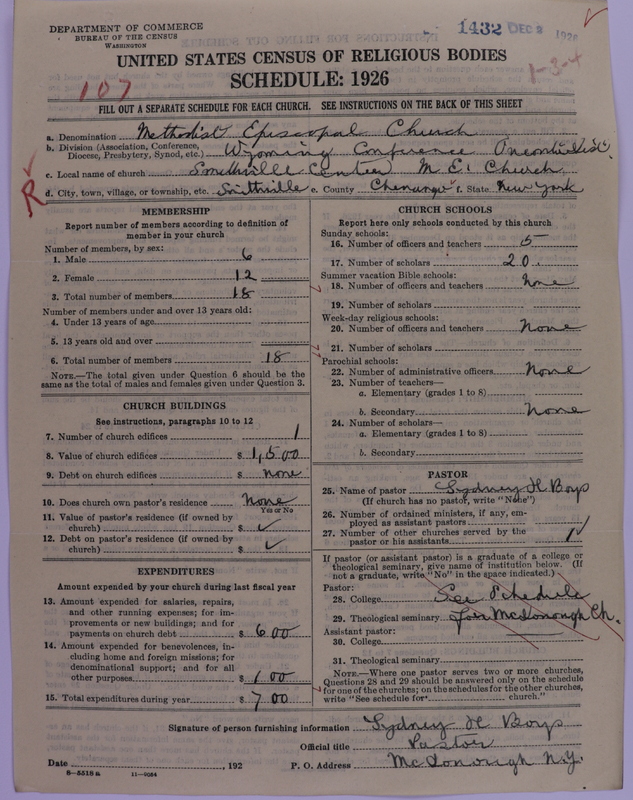 DEPARTMENT OF COMMERCE
BUREAU OF THE CENSUS
WASHINGTON
1432 DEC 2 1926
UNITED STATES CENSUS OF RELIGIOUS BODIES
SCHEDULE: 1926
107
1-3-4
FILL OUT A SEPARATE SCHEDULE FOR EACH CHURCH. SEE INSTRUCTIONS ON THE BACK OF THIS SHEET
a. Denomination Methodist Episcopal Church
b. Division (Association, Conference, Diocese, Presbytery, Synod, etc.) Wyoming Conference Oneonta Dist.
c. Local name of church Smithville Center M. E. Church
d. City, town, village, or township, etc. Smithville e. County Chenango f. State New York
R
MEMBERSHIP
Report number of members according to definition of
member in your church
Number of members, by sex:
1. Male 6
2. Female 12
3. Total number of members 18
Number of members under and over 13 years old:
4. Under 13 years of age
5. 13 years old and over
6. Total number of members 18
NOTE.—The total given under Question 6 should be
same as the total of males and females given under Question 3.
CHURCH BUILDINGS
See instructions, paragraphs 10 to 12
7. Number of church edifices 1
8. Value of church edifices $ 1,500
9. Debt on church edifices $ none
10. Does church own pastor's residence none
Yes or No
11. Value of pastor's residence (if owned by
church) $ ✓
12. Debt on pastor's residence (if owned by
church) $ ✓
EXPENDITURES
Amount expended by your church during last fiscal year
13. Amount expended for salaries, repairs,
and other running expenses; for im-
provements or new buildings; and for
payments on church debt $ 600
14. Amount expended for benevolences, in-
cluding home and foreign missions; for
denominational support; and for all
other purposes $ 100
15. Total expenditures during year $ 700
CHURCH SCHOOLS
Report here only schools conducted by this church
Sunday schools:
16. Number of officers and teachers 5
17. Number of scholars 20.
Summer vacation Bible schools:
18. Number of officers and teachers none
19. Number of scholars
Week-day religious schools:
20. Number of officers and teachers None
21. Number of scholars
Parochial schools:
22. Number of administrative officers None
23. Number of teachers—
a. Elementary (grades 1 to 8)
b. Secondary None
24. Number of scholars—
a. Elementary (grades 1 to 8)
b. Secondary
PASTOR
25. Name of pastor Sydney H Boys
(If church has no pastor, write "None")
26. Number of ordained ministers, if any, em-
ployed as assistant pastors
27. Number of other churches served by the
pastor or his assistants 1
If pastor (or assistant pastor) is a graduate of a college or
theological seminary, give name of institution below. (If
not a graduate, write "No" in the space indicated.)
Pastor:
28. College See Schedule
29. Theological seminary for McDonough Ch.
Assistant pastor:
30. College
31. Theological seminary
NOTE.—Where one pastor serves two or more churches,
Questions 28 and 29 should be answered only on the schedule
for one of the churches; on the schedules for the other churches,
write "See schedule for church."
Signature of person furnishing information Sydney H Boys
Official title Pastor
Date , 192 P. O. Address McDonough N.Y.
8—5518 a 11—9054